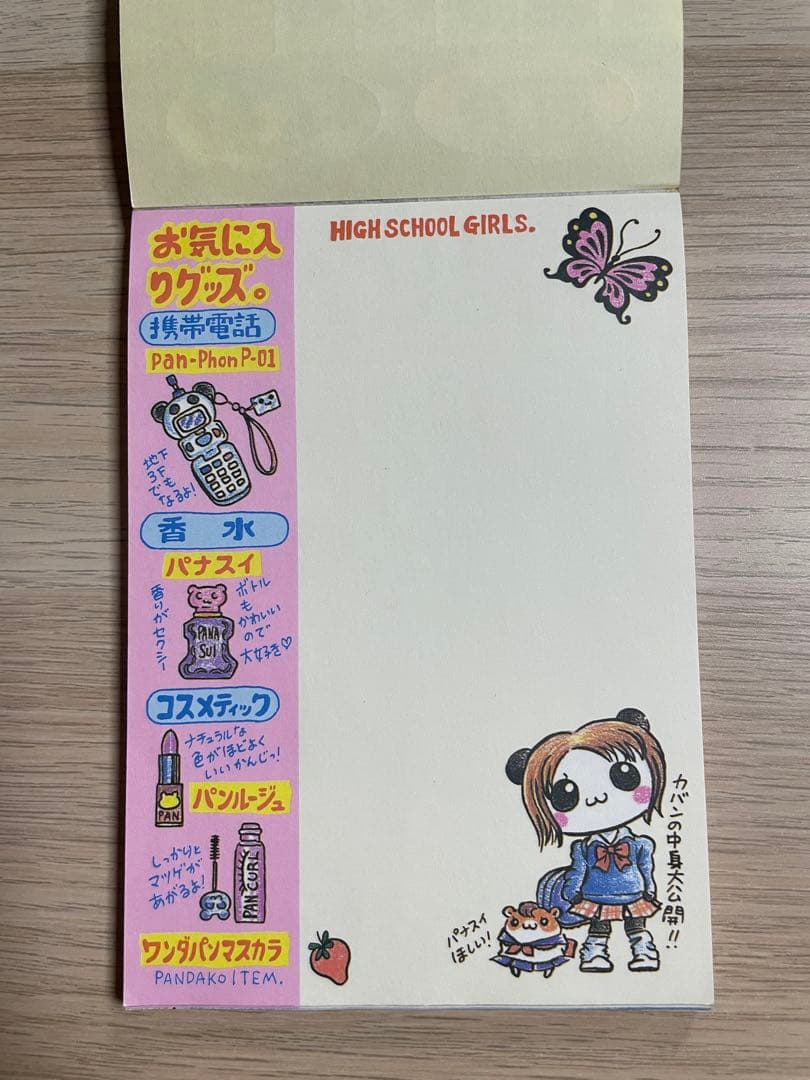 お気に入
りグッズ。
携帯電話
Pan-Phon P-01
地下
3F
でも
なるよ!
香水
パナスイ
香りがセクシー
PANA
SUI
ボトル
もかわいい
ので
大好き♡
コスメティック
ナチュラルな
色がほどよく
いいかんじっ!
PAN
パンルージュ
しっかりと
マツゲが
あがるよ!
PAN CURL
ワンダパンマスカラ
PANDAKO ITEM.
HIGH SCHOOL GIRLS.
カバンの中身大公開!!
パナスイ
ほしい!